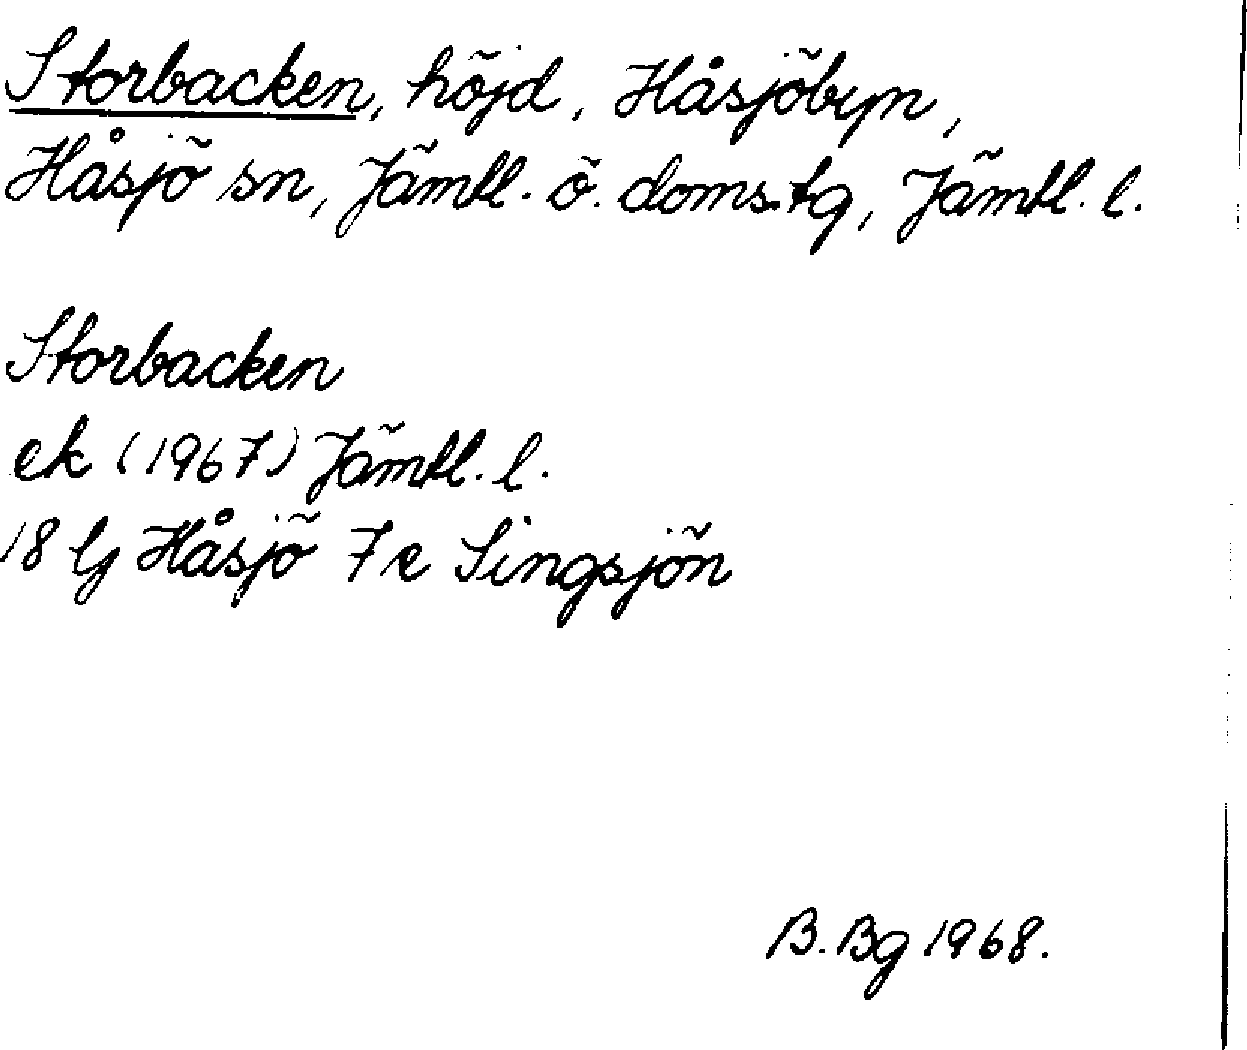 Storbacken, höjd, Håsjöbyn,
Håsjö sn, Jämtl. ö. doms.tg, Jämtl. l.
Storbacken
ek (1967) Jämtl. l.
18 G Håsjö 7c Singsjön
B. Bg 1968.